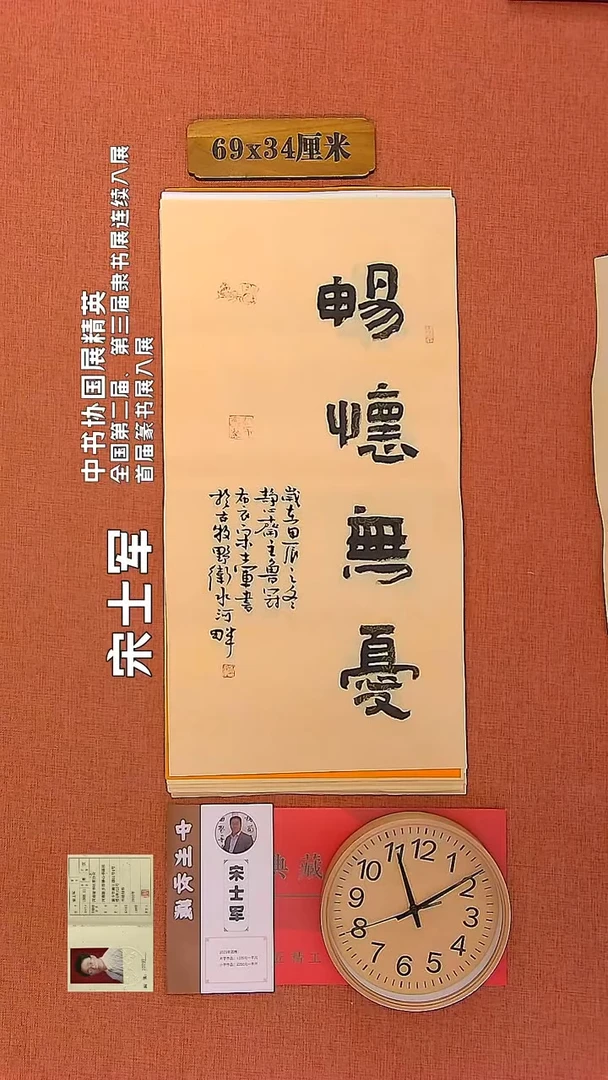 69x34厘米
暢懷無憂
歲在甲辰之冬
靜心齋主魯冠
布衣宋士軍書
於古牧野衛水河
畔
宋士军
中书协国展精英
全国第二届、第三届隶书展连续入展
首届篆书展入展
中
宋士军
典藏
精工
12
1
2
3
4
5
6
7
8
9
10
11